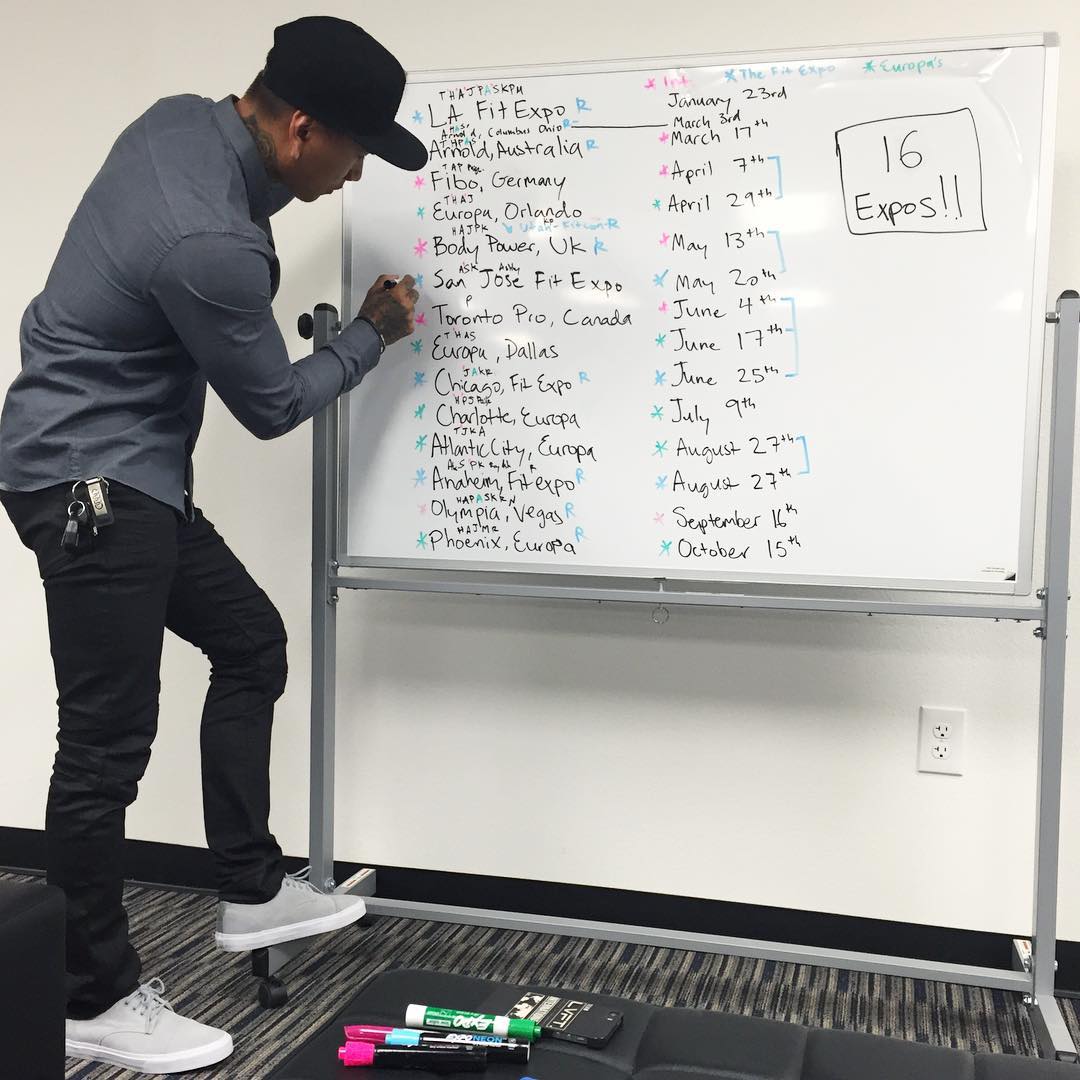 * Int * The Fit Expo * Europa's
T H A J P A S K P M
* LA Fit Expo R January 23rd
Arnold, Columbus Ohio R - March 3rd
Arnold, Australia R * March 17th
T A P
* Fibo, Germany * April 7th
T H A J
* Europa, Orlando * April 29th
H A J P K Utah - Fitcon - R
* Body Power, UK R * May 13th
A S K Ashly
* San Jose Fit Expo * May 20th
P
* Toronto Pro, Canada * June 4th
T H A S
* Europa, Dallas * June 17th
J A K R
* Chicago, Fit Expo R * June 25th
H P J
* Charlotte, Europa * July 9th
T J K A
* Atlantic City, Europa * August 27th
A S P K R
* Anaheim, Fit expo R * August 27th
H A P A S K R N
* Olympia, Vegas R * September 16th
H A J M R
* Phoenix, Europa R * October 15th
16
Expos!!
EXPO
EXPO NEON
LVFT